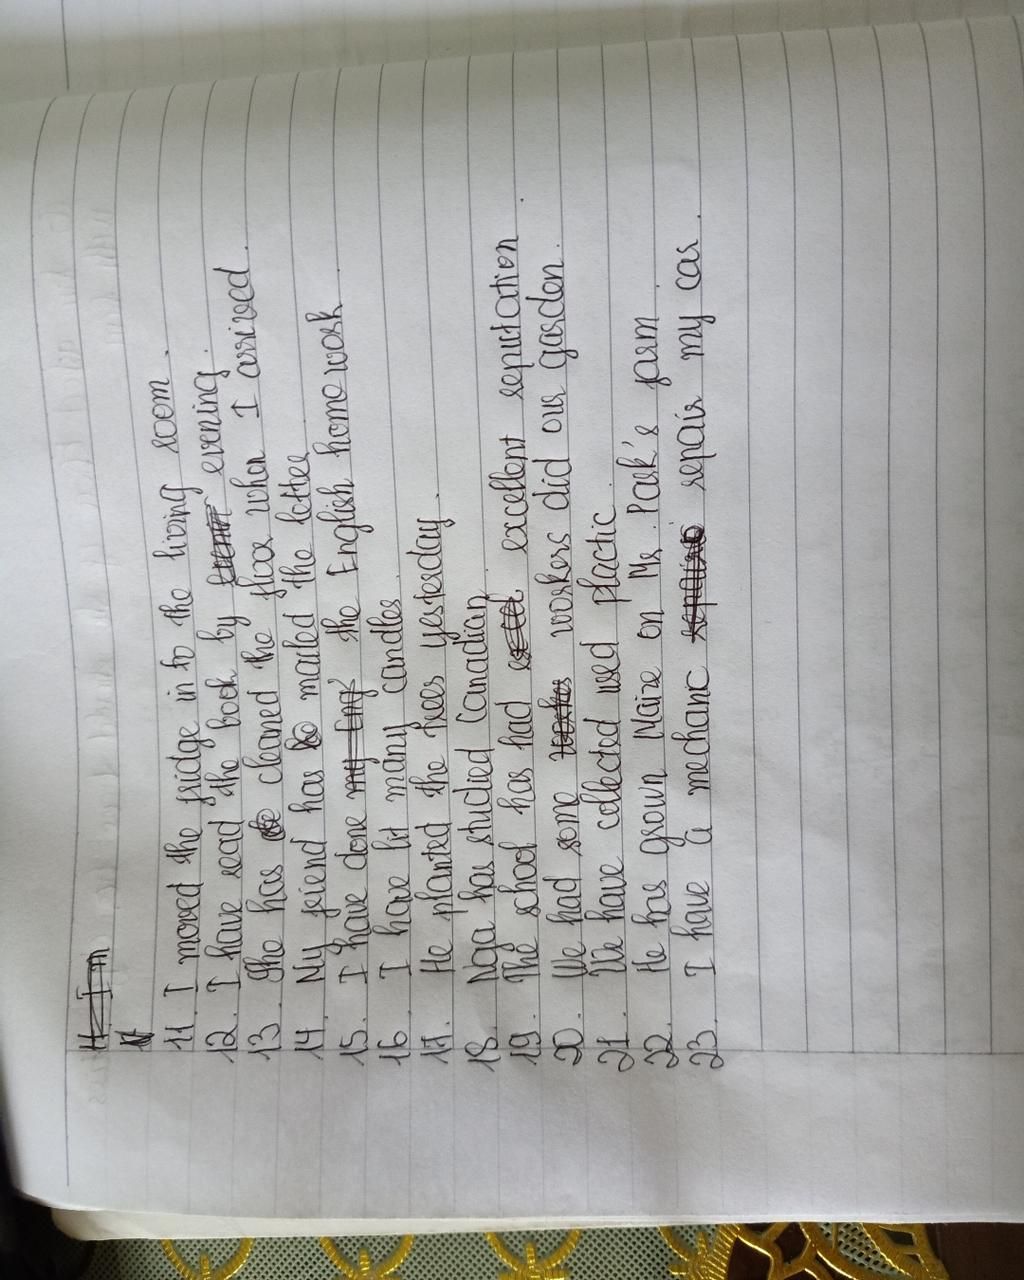 11. I moved the fridge in to the living room.
12. I have read the book by evening.
13. She has cleaned the floor when I arrived.
14. My friend has mailed the letter
15. I have done the English homework.
16. I have lit many candles.
17. He planted the trees yesterday.
18. Nga has studied Canadian.
19. The school has had excellent reputation.
20. We had some workers did our garden.
21. We have collected used plactic.
22. He has grown Maize on Mr. Park's farm.
23. I have a mechanic repair my car.